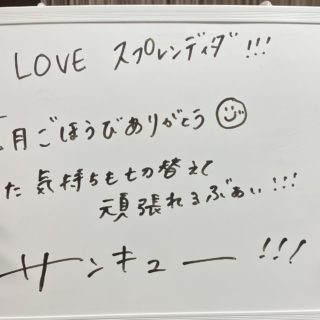 LOVE スプレンディダ!!!
月ごほうびありがとう
た気持ちも切り替えて
頑張れるぶぁい!!!
サンキュー!!!